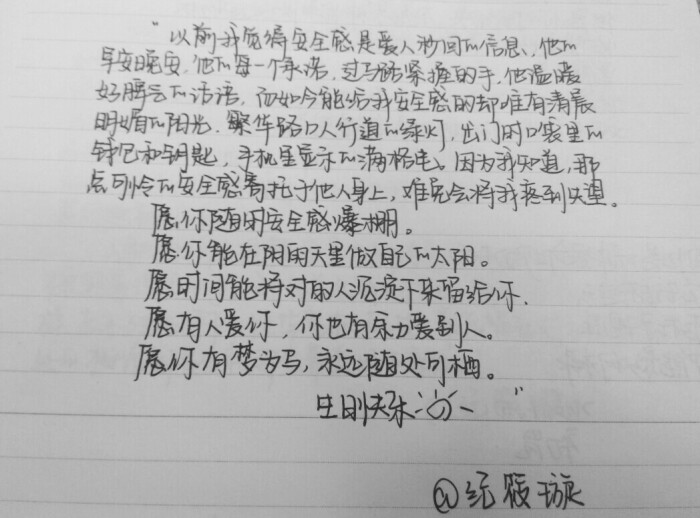 “以前我觉得安全感是爱人秒回的信息、他的
早安晚安、他的每一个承诺、过马路紧握的手、他温暖
好脾气的话语，而如今能给我安全感的却唯有清晨
明媚的阳光、繁华路口人行道的绿灯，出门时口袋里的
钱包和钥匙，手机里显示的满格电。因为我知道，那
点可怜的安全感寄托于他人身上，难免会将我拖到失望。
愿你随时安全感爆棚。
愿你能在阴雨天里做自己的太阳。
愿时间能将对的人沉淀下来留给你.
愿有人爱你，你也有余力爱别人。
愿你有梦为马，永远随处可栖。
生日快乐”
@纪筱璇